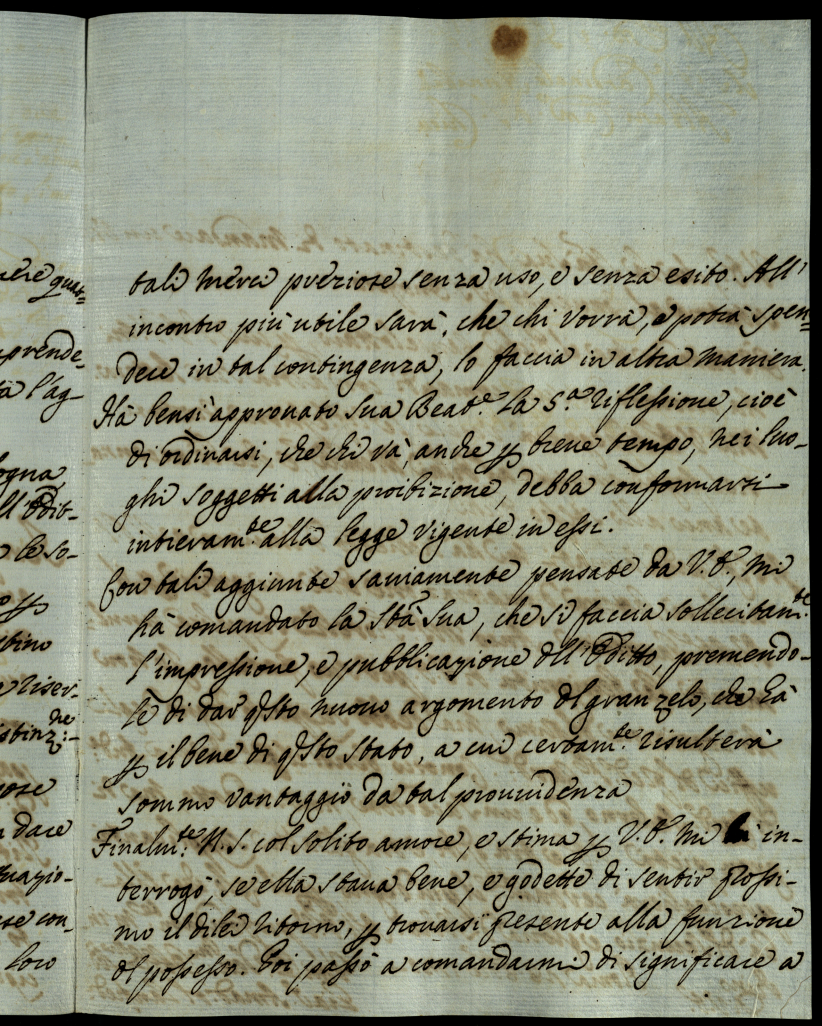 tali merci preziose senza uso, e senza esito. All'
incontro più utile sarà, che chi vorrà, e potrà spen=
dere in tal contingenza, lo faccia in altra maniera.
Hà bensì approvato Sua Beat.e la 5.a riflessione, cioè
di ordinarsi, che chi và, anche p breve tempo, nei luo-
ghi soggetti alla proibizione, debba conformarsi
intieram.te alla legge vigente in essi.
Con tali aggiunte saviamente pensate da V.E., mi
hà comandato la Stà Sua, che si faccia sollecitam.te
l'impressione, e pubblicazione dell'Editto, premendo-
le di dar qsto nuovo argomento del gran zelo, che hà
p il bene di qsto stato, a cui certam.te risulterà
sommo vantaggio da tal provvidenza
Finalm.te N.S. col solito amore, e stima p V.E. mi in-
terrogò, se ella stava bene, e godette di sentir prossi-
mo il di lei ritorno, p trovarsi presente alla funzione
del possesso. Poi passò a comandarmi di significare a
gnere quat=
prende-
tà l'ag-
logna
ll'Edit-
le so-
p
riser-
stinz.ne
dare
loro